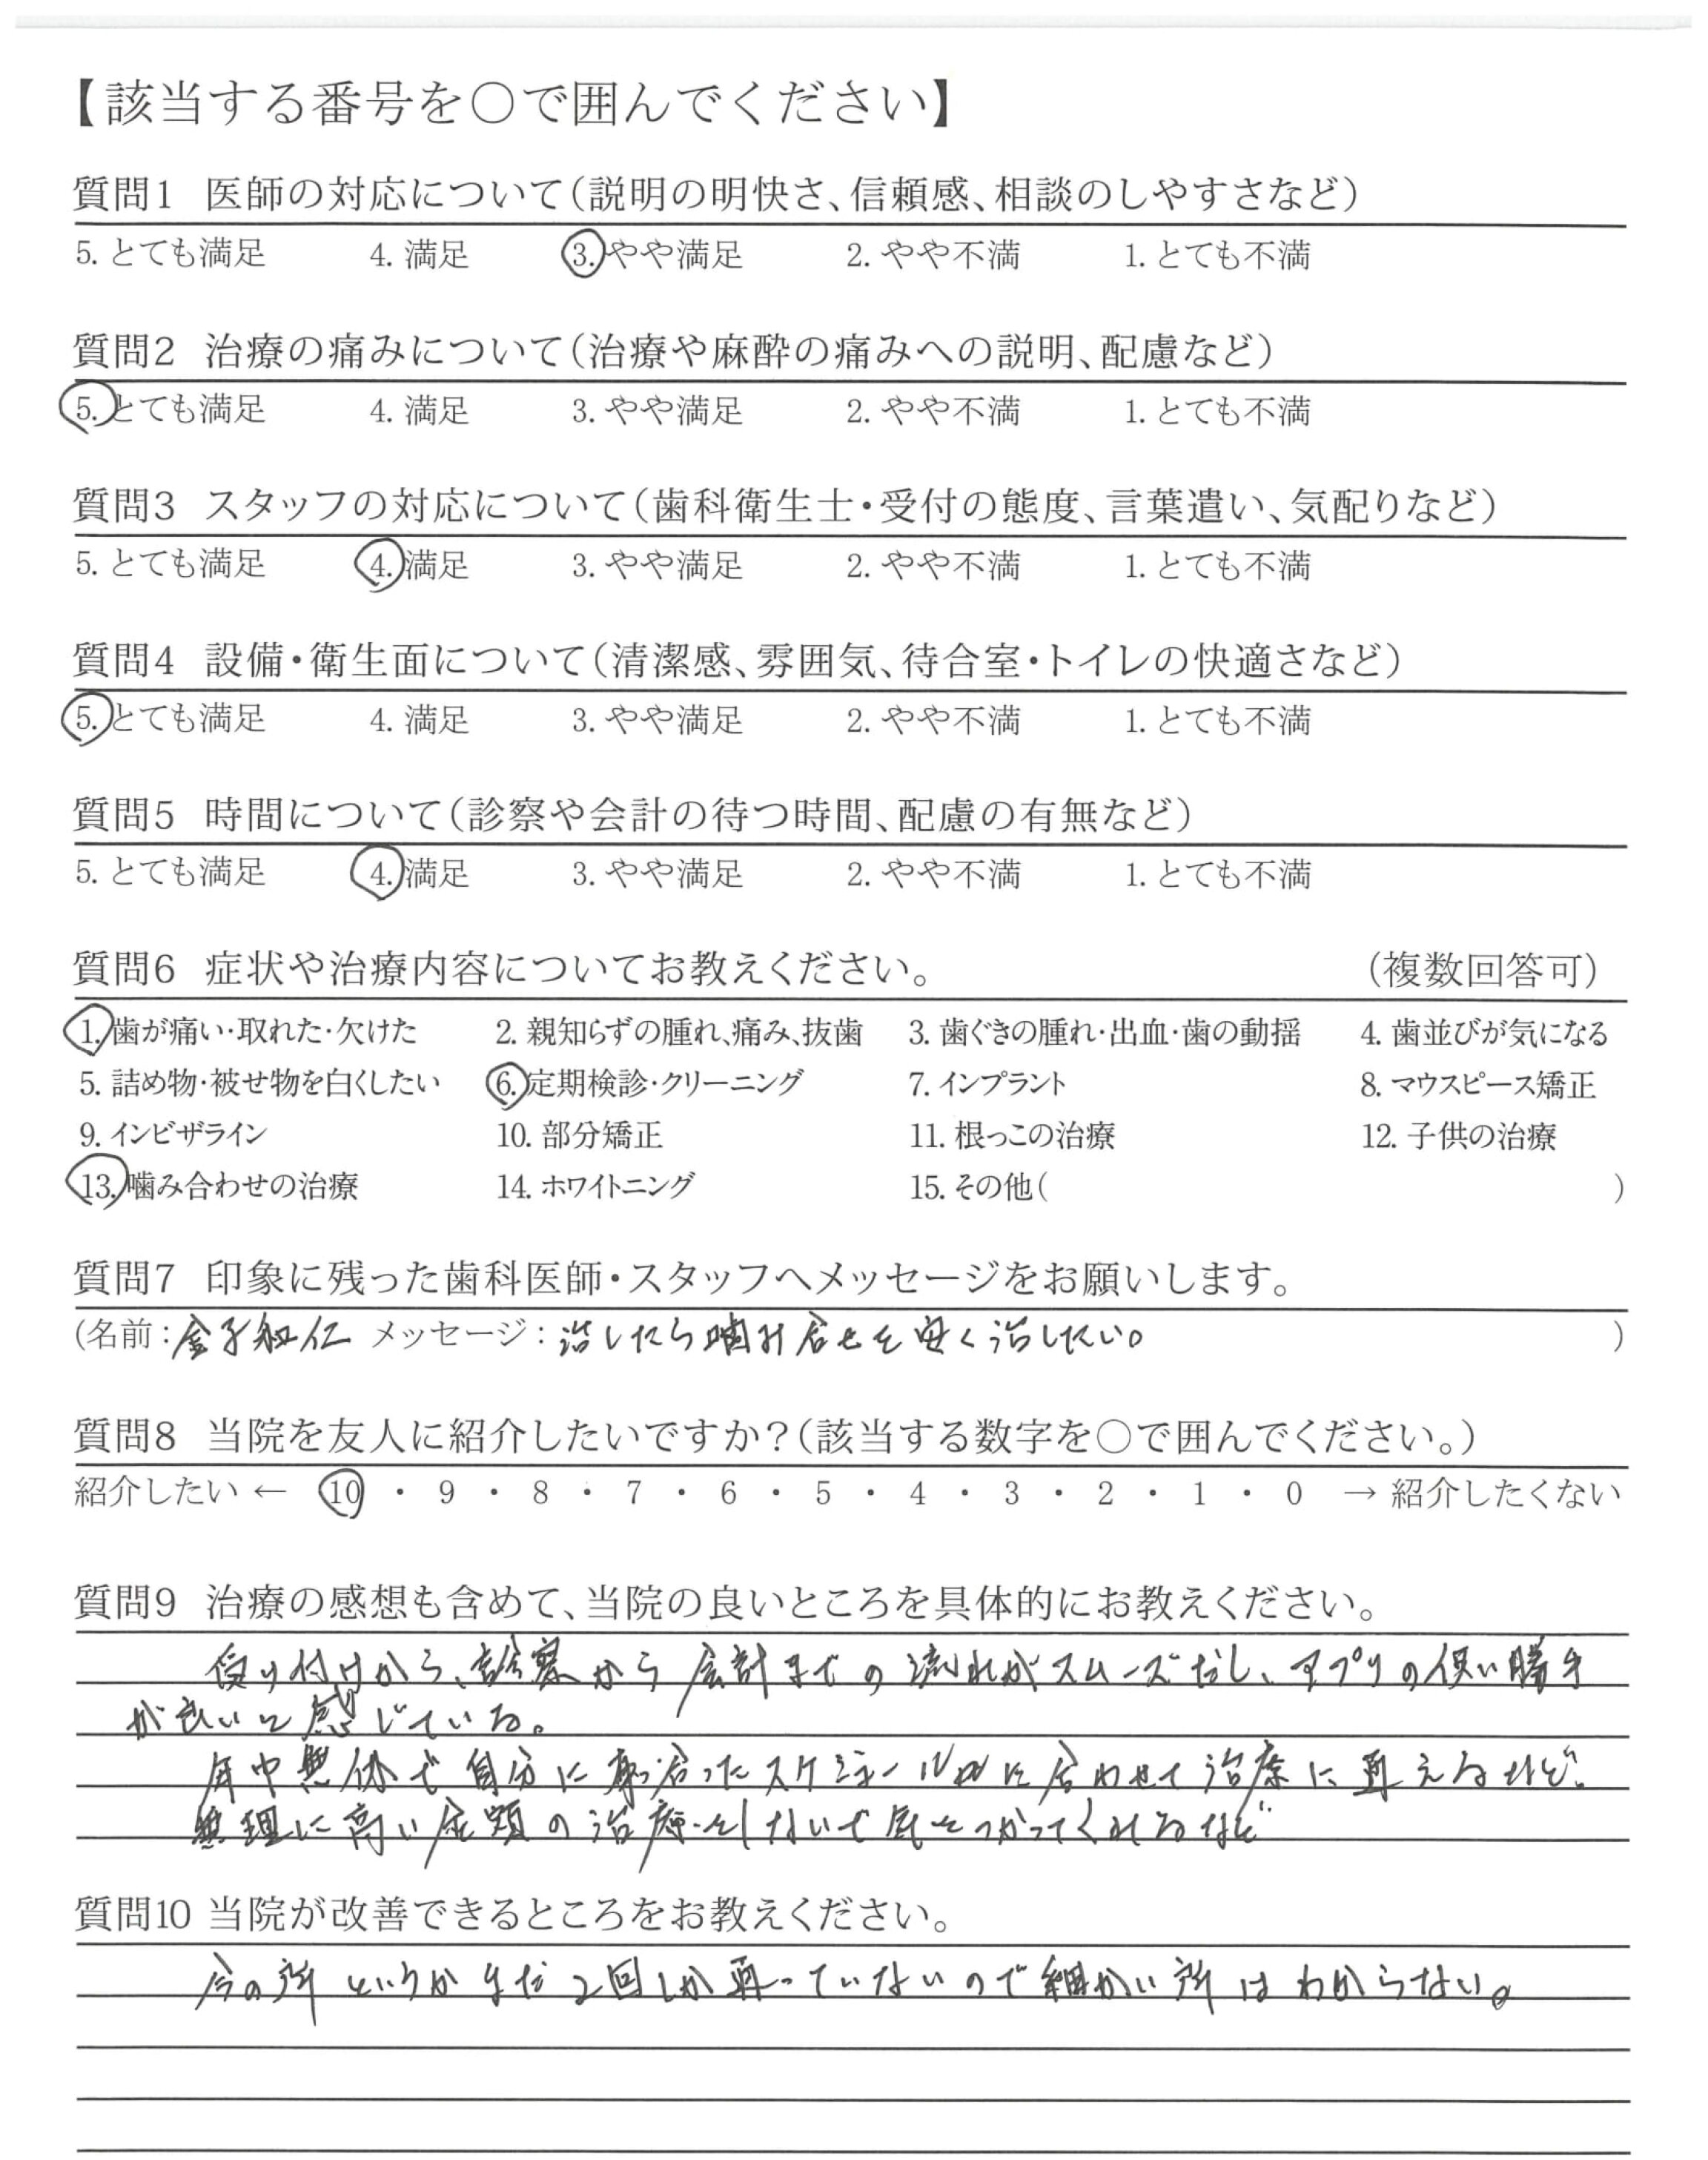 【該当する番号を○で囲んでください】
質問1 医師の対応について(説明の明快さ、信頼感、相談のしやすさなど)
5. とても満足 4. 満足 3. やや満足 2. やや不満 1. とても不満
質問2 治療の痛みについて(治療や麻酔の痛みへの説明、配慮など)
5. とても満足 4. 満足 3. やや満足 2. やや不満 1. とても不満
質問3 スタッフの対応について(歯科衛生士・受付の態度、言葉遣い、気配りなど)
5. とても満足 4. 満足 3. やや満足 2. やや不満 1. とても不満
質問4 設備・衛生面について(清潔感、雰囲気、待合室・トイレの快適さなど)
5. とても満足 4. 満足 3. やや満足 2. やや不満 1. とても不満
質問5 時間について(診察や会計の待つ時間、配慮の有無など)
5. とても満足 4. 満足 3. やや満足 2. やや不満 1. とても不満
質問6 症状や治療内容についてお教えください。 (複数回答可)
1. 歯が痛い・取れた・欠けた 2. 親知らずの腫れ、痛み、抜歯 3. 歯ぐきの腫れ・出血・歯の動揺 4. 歯並びが気になる
5. 詰め物・被せ物を白くしたい 6. 定期検診・クリーニング 7. インプラント 8. マウスピース矯正
9. インビザライン 10. 部分矯正 11. 根っこの治療 12. 子供の治療
13. 噛み合わせの治療 14. ホワイトニング 15. その他( )
質問7 印象に残った歯科医師・スタッフへメッセージをお願いします。
(名前: 金子 メッセージ: 治したら噛み合せを安く治したい。 )
質問8 当院を友人に紹介したいですか?(該当する数字を○で囲んでください。)
紹介したい ← 10 ・ 9 ・ 8 ・ 7 ・ 6 ・ 5 ・ 4 ・ 3 ・ 2 ・ 1 ・ 0 → 紹介したくない
質問9 治療の感想も含めて、当院の良いところを具体的にお教えください。
受け付けから、診察から会計までの流れがスムーズだし、アプリの使い勝手
が良いと感じている。
年中無休で自分に合ったスケジュールに合わせて治療に通えるなど。
無理に高い金額の治療をしないで気をつかってくれるなど
質問10 当院が改善できるところをお教えください。
今の所というかまだ2回しか通っていないので細かい所はわからない。